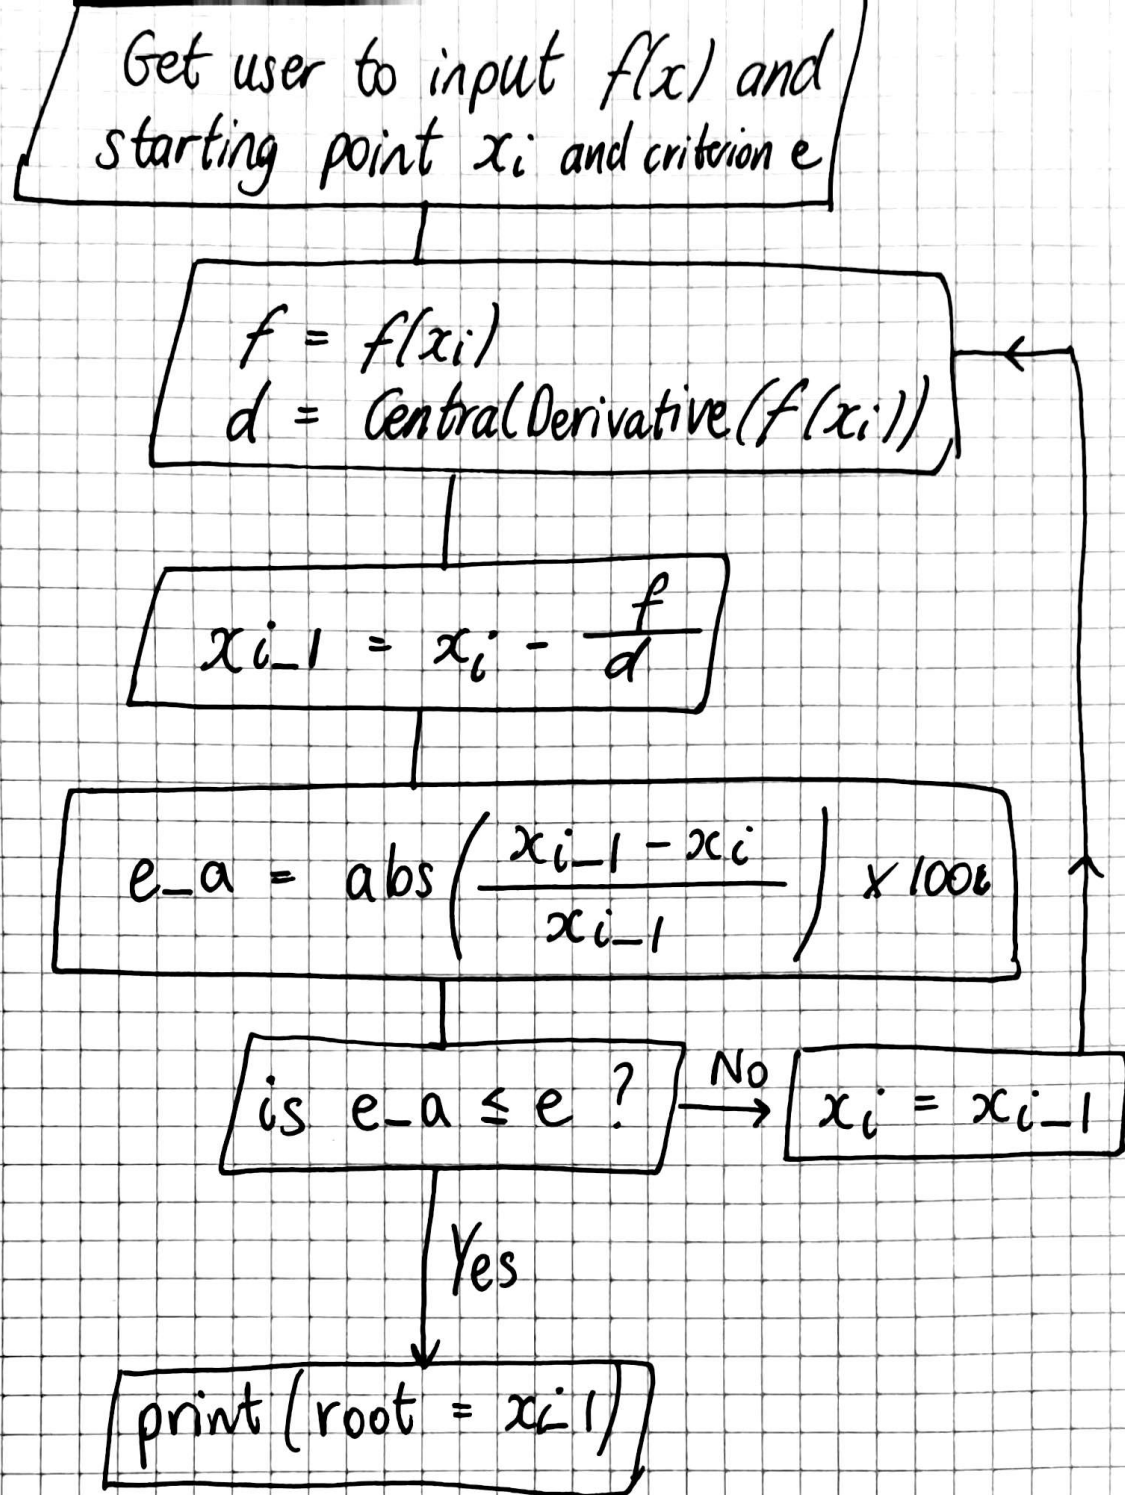 Get user to input f(x) and
starting point xi and criterion e
f = f(xi)
d = CentralDerivative(f(xi))
xi_1 = xi - f/d
e_a = abs((xi_1 - xi)/xi_1) x 100
is e_a ≤ e ?
No
xi = xi_1
Yes
print(root = xi_1)